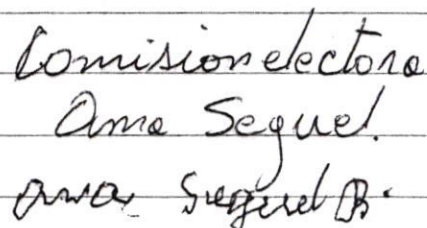 Comision electora
Ana Seguel.
Ana Seguel B.